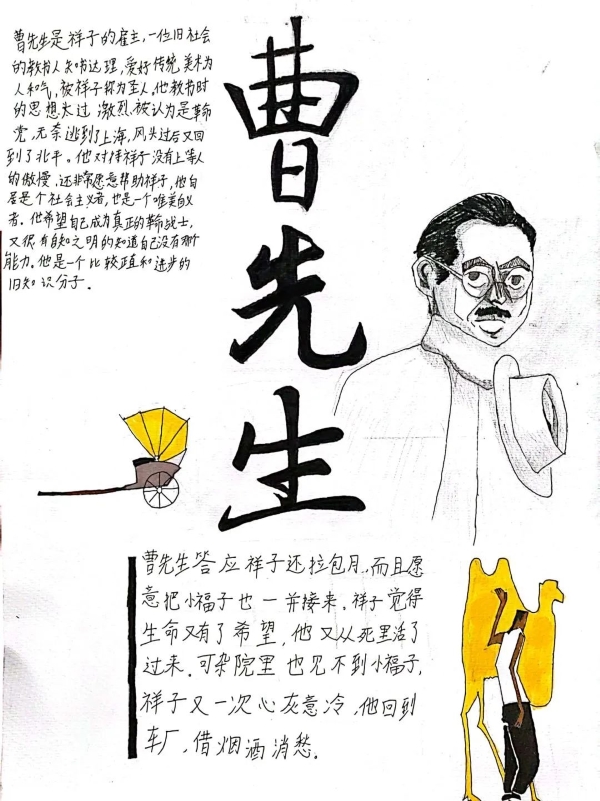 曹先生是祥子的雇主,一位旧社会
的教书人知书达理,爱好传统美术为
人和气,被祥子称为圣人,他教书时
的思想太过激烈,被认为是革命
党,无奈逃到了上海,风头过后又回
到了北平。他对待祥子没有上等人
的傲慢,还非常愿意帮助祥子,他自
居是个社会主义者,也是一个唯美主义
者。他希望自己成为真正的革命战士,
又很有自知之明的知道自己没有那个
能力。他是一个比较正直和进步的
旧知识分子。
曹先生
曹先生答应祥子还拉包月,而且愿
意把小福子也一并接来。祥子觉得
生命又有了希望,他又从死里活了
过来。可杂院里也见不到小福子,
祥子又一次心灰意冷,他回到
车厂,借烟酒消愁。